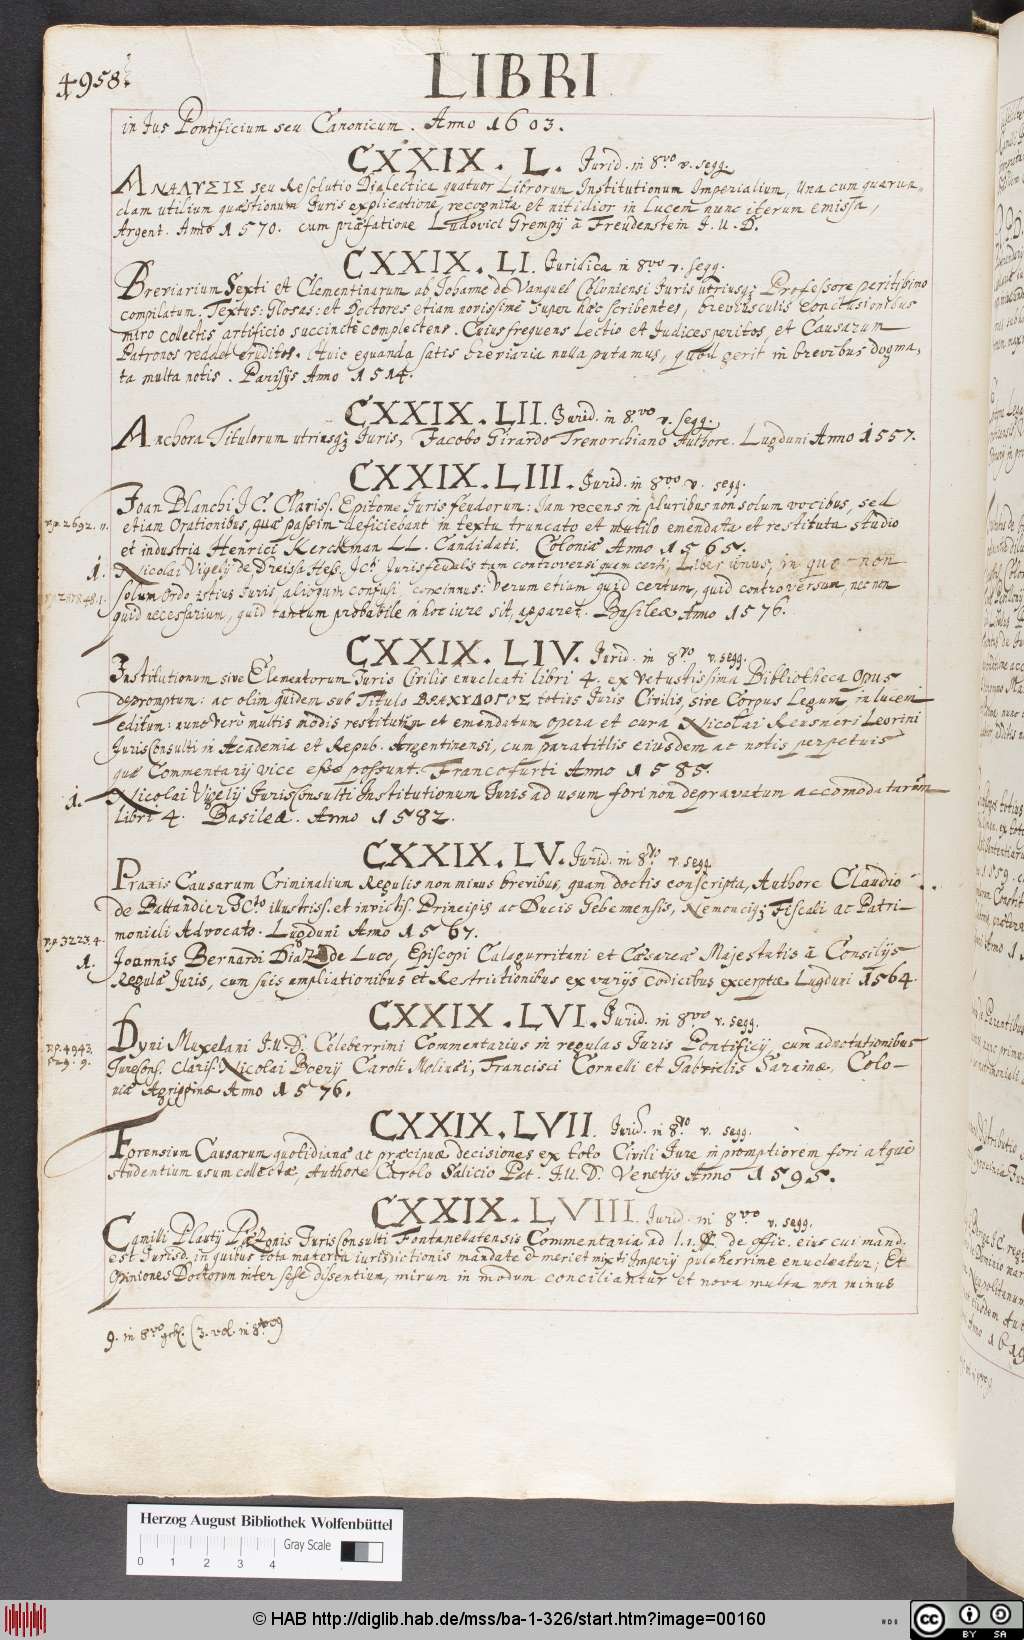 4958
LIBRI
in Jus Pontificium seu Canonicum. Anno 1603.
CXXIX. L. Jurid. in 8.vo v. segg.
ΑΝΑΛΥΣΙΣ seu Resolutio Dialectica quatuor Librorum Institutionum Imperialium, Una cum quarun-
dam utilium quæstionum Juris explicatione, recognita et nitidior in lucem nunc iterum emissa,
Argent. Anno 1570. cum præfatione Ludovici Grempij à Freudenstein J.U.D.
CXXIX. LI. Juridica in 8vo v. segg.
Breviarium Sexti et Clementinarum ab Johanne de Vanquel Coloniensi Juris utriusq; Professore peritissimo
compilatum. Textus: Glosas: et Doctores etiam novissime super hoc scribentes, breviusculis conclusionibus
miro collectis artificio succincte complectens. Cuius frequens lectio et Judices peritos, et Causarum
Patronos reddet eruditos. Huic equanda satis breviaria nulla putamus, quod gerit in brevibus dogma-
ta multa notis. Parisijs Anno 1514.
CXXIX. LII. Jurid. in 8.vo v. segg.
Anchora Titulorum utriusq; Juris, Jacobo Girardo Trenorchiano Authore. Lugduni Anno 1557.
CXXIX. LIII. Jurid. in 8vo v. segg.
v.p. 2692. n.
Joan Blanchi J C. Clariss. Epitome Juris feudorum: Jam recens in pluribus non solum vocibus, sed
etiam Orationibus, quæ passim deficiebant in textu truncato et mutilo emendata et restituta studio
et industria Henrici Kerckman LL. Candidati. Coloniæ Anno 1565.
1.
Nicolai Vigelij de Dreissa Hess. JCti Juris feudalis tam controversi quam certi, Liber unus, in quo non
solum Ordo istius Juris, alioqum confusi, concinnus: Verum etiam quid certum, quid controversum, nec non
quid necessarium, quid tantum probabile in hoc iure sit, apparet. Basileæ Anno 1576.
CXXIX. LIV. Jurid. in 8.vo v. segg.
Institutionum sive Elementorum Juris Civilis enucleati libri 4. ex vetustissima Bibliotheca Opus
depromptum: ac olim quidem sub Titulo ΒΡΑΧΥΛΟΓΟΣ totius Juris Civilis, sive Corpus Legum, in lucem
editum: nunc vero multis modis restitutum et emendatum opera et cura Nicolai Reusneri Leorini
Jurisconsulti in Academia et Repub. Argentinensi, cum paratitlis eiusdem ac notis perpetuis
quæ Commentarij vice esse possunt. Francofurti Anno 1585.
1.
Nicolai Vigelij Jurisconsulti Institutionum Juris ad usum fori non depravatum accomodatarum
libri 4. Basileæ. Anno 1582.
CXXIX. LV. Jurid. in 8.vo v. segg.
Praxis Causarum Criminalium Regulis non minus brevibus, quam doctis conscripta, Authore Claudio
de Battandier JCto illustriss. et invictis. Principis ac Ducis Gebemensis, Nemonciq; Fiscali ac Patri-
moniali Advocato. Lugduni Anno 1567.
v.p. 3223. 4.
1.
Joannis Bernardi Diaz de Luco, Episcopi Calagurritani et Cæsareæ Majestatis à Consilijs
Regulæ Juris, cum suis ampliationibus et Restrictionibus ex varijs codicibus excerptæ Lugduni 1564.
CXXIX. LVI. Jurid. in 8.vo v. segg.
v.p. 4943.
Dyni Muxelani J.U.D. Celeberrimi Commentarius in regulas Juris Pontificij, cum adnotationibus
Jurescons. clariss. Nicolai Boerij Caroli Molinæi, Francisci Cornelli et Gabrielis Sarainæ, Colo-
niæ Agrippinæ Anno 1576.
CXXIX. LVII. Jurid. in 8.vo v. segg.
Forensium Causarum quotidianæ ac præcipuæ decisiones ex toto Civili Jure in promptiorem fori atque
studentium usum collectæ, Authore Carolo Salicio Pat. J.U.D. Venetijs Anno 1595.
CXXIX. LVIII. Jurid. in 8.vo v. segg.
Camilli Plauty Pezonis Jurisconsulti Fontanelatensis Commentaria ad l. 1. ff. de offic. eius cui mand.
est Jurisd. in quibus tota materia iurisdictionis mandatæ & meri et mixti Imperij pulcherrime enucleatur; Et
Opiniones Doctorum inter sese dissentium, mirum in modum conciliantur et nova multa non minus
9. in 8vo
(3. vol. in 8vo)
Herzog August Bibliothek Wolfenbüttel
Gray Scale
0 1 2 3 4
© HAB http://diglib.hab.de/mss/ba-1-326/start.htm?image=00160
cc BY SA